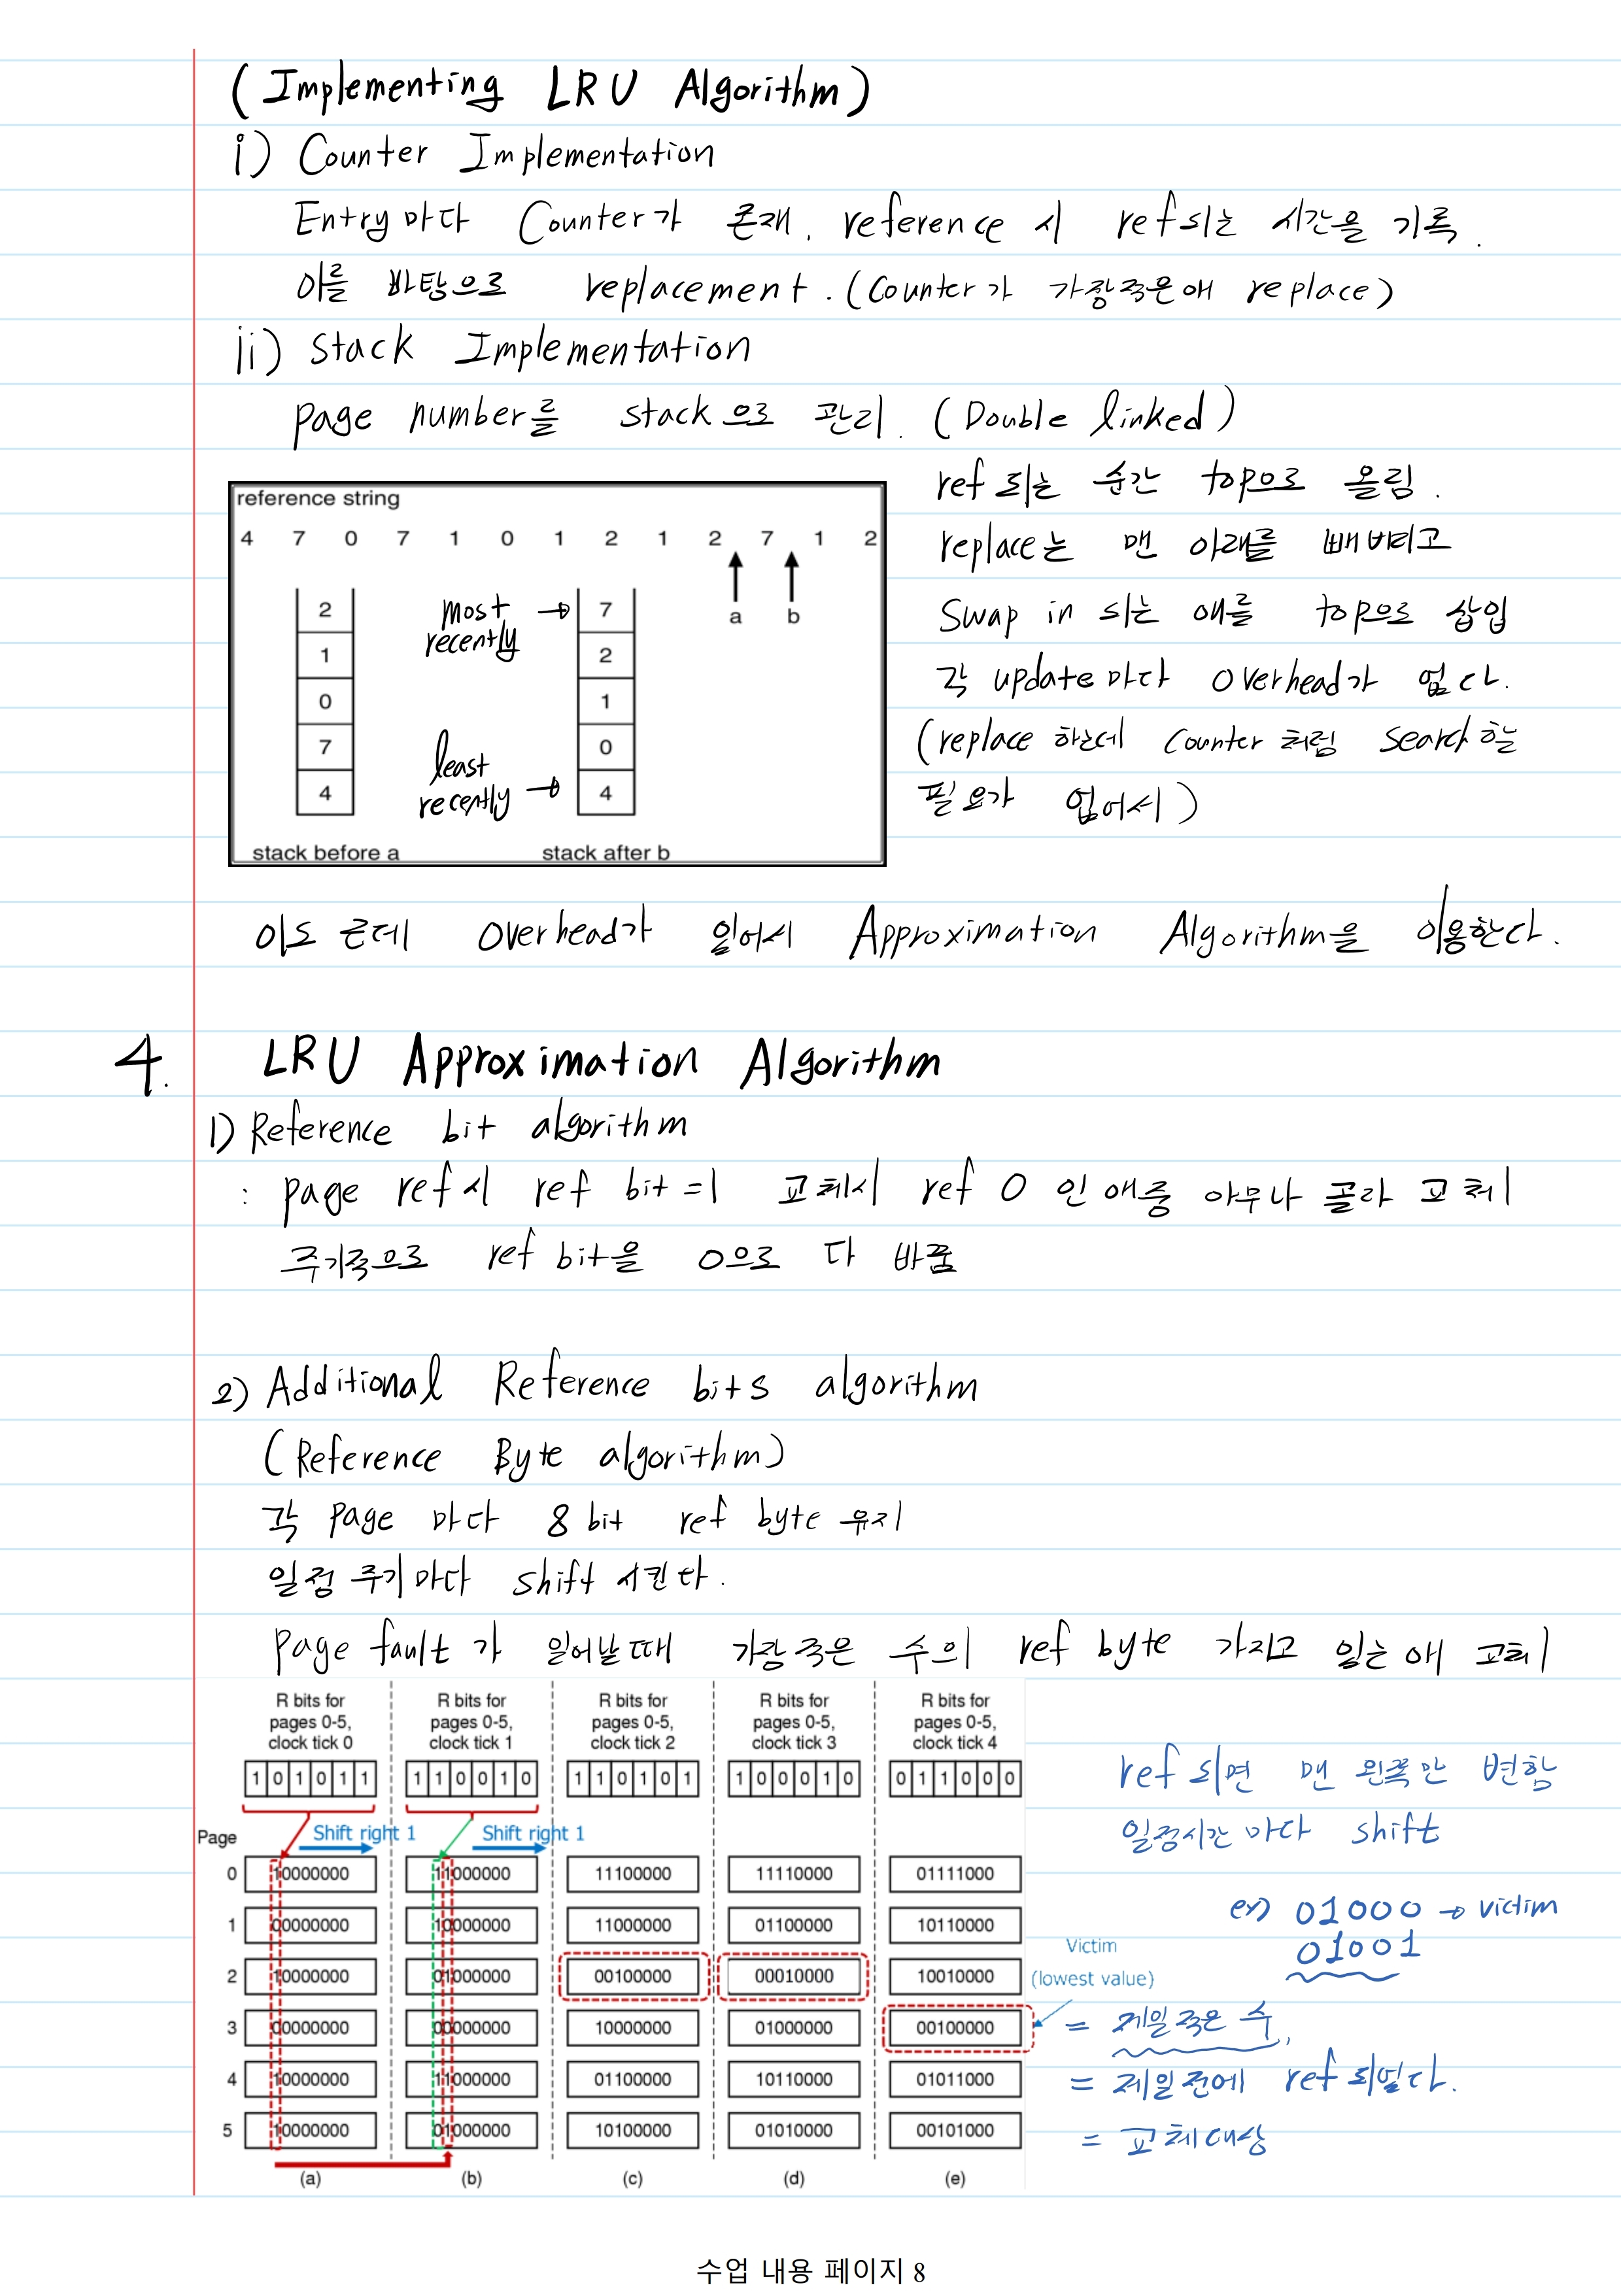 (Implementing LRU Algorithm)
i) Counter Implementation
Entry마다 Counter가 존재. reference 시 ref되는 시간을 기록.
이를 바탕으로 replacement. (Counter가 가장적은애 replace)
ii) stack Implementation
page number를 stack으로 관리. (Double linked)
reference string
4 7 0 7 1 0 1 2 1 2 7 1 2
a b
2
1
0
7
4
most recently →
least recently →
7
2
1
0
4
stack before a
stack after b
ref 되는 순간 top으로 올림.
replace는 맨 아래를 빼버리고
Swap in 되는 애를 top으로 삽입
각 update마다 overhead가 없다.
(replace 하는데 counter처럼 search할
필요가 없어서)
이도 근데 overhead가 있어서 Approximation Algorithm을 이용한다.
4. LRU Approximation Algorithm
1) Reference bit algorithm
: page ref시 ref bit =1 교체시 ref 0 인애중 아무나 골라 교체
주기적으로 ref bit을 0으로 다 바꿈
2) Additional Reference bits algorithm
(Reference Byte algorithm)
각 page 마다 8 bit ref byte 유지
일정 주기마다 shift 시킨다.
page fault가 일어날때 가장 적은 수의 ref byte 가지고 있는 애 교체
R bits for pages 0-5, clock tick 0
R bits for pages 0-5, clock tick 1
R bits for pages 0-5, clock tick 2
R bits for pages 0-5, clock tick 3
R bits for pages 0-5, clock tick 4
1 0 1 0 1 1
1 1 0 0 1 0
1 1 0 1 0 1
1 0 0 0 1 0
0 1 1 0 0 0
Page Shift right 1 Shift right 1
0 10000000 11000000 11100000 11110000 01111000
1 00000000 10000000 11000000 01100000 10110000
2 10000000 01000000 00100000 00010000 10010000
3 00000000 00000000 10000000 01000000 00100000
4 10000000 11000000 01100000 10110000 01011000
5 10000000 01000000 10100000 01010000 00101000
(a) (b) (c) (d) (e)
Victim
(lowest value)
ref 되면 맨 왼쪽만 변함
일정시간 마다 shift
ex) 01000 → victim
01001
= 제일 적은 수,
= 제일 전에 ref 되었다.
= 교체대상
수업 내용 페이지 8